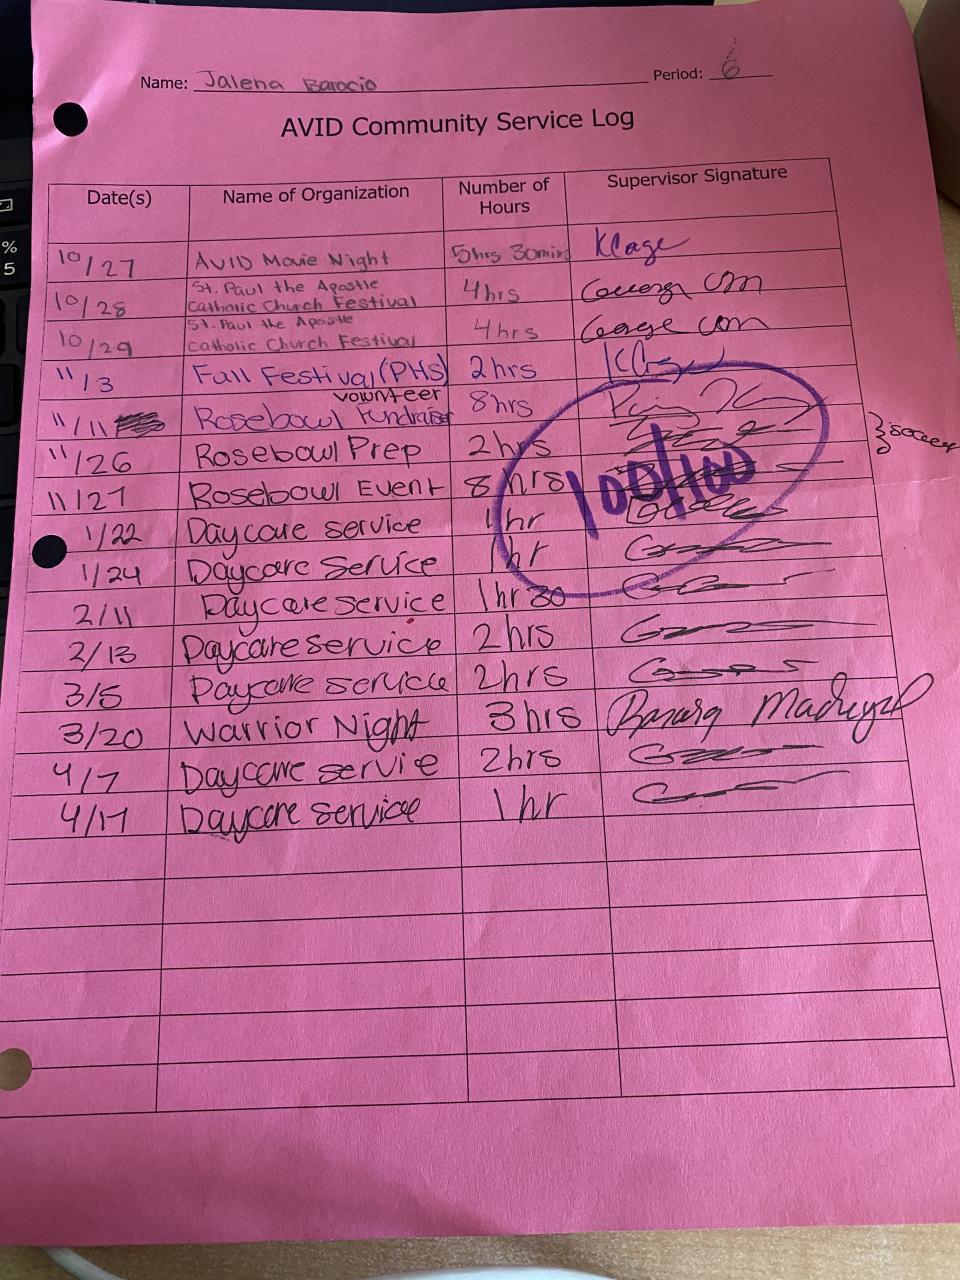 Name: Jalena Barocio Period: 6
AVID Community Service Log
Date(s) Name of Organization Number of Hours Supervisor Signature
10/27 AVID Movie Night 5hrs 30mins KCage
10/28 St. Paul the Apostle Catholic Church Festival 4hrs
10/29 St. Paul the Apostle Catholic Church Festival 4hrs
11/3 Fall Festival (PHS) 2hrs
11/11 Rosebowl volunteer Fundraiser 8hrs
11/26 Rosebowl Prep 2hrs
11/27 Rosebowl Event 8 hrs
100/100
1/22 Daycare service 1hr
1/24 Daycare Service 1hr
2/11 Daycare service 1hr 30
2/13 Daycare service 2hrs
3/5 Daycare service 2hrs
3/20 Warrior Night 3hrs Madrigal
4/7 Daycare servie 2hrs
4/17 Daycare service 1hr
%
5